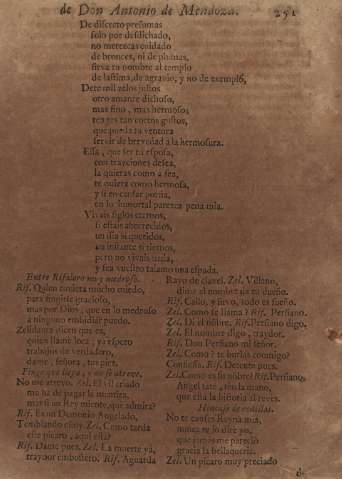 de Don Antonio de Mendoza. 251
De discreto presumas
solo por desdichado,
no merezcas cuidado
de bronces, ni de plumas,
sirva tu nombre al templo
de lastima, de agravio, y no de exemplo,
Dete mil zelos justos
otro amante dichoso,
mas fino, mas hermoso;
tengas tan cortos gustos,
que pueda tu ventura
servir de brevedad a la hermosura.
Essa, que ser tu esposa,
con trayciones desea,
la quieras como a fea,
te quiera como hermosa,
y si en casar porfia,
en lo inmortal parezca pena mia.
Vivais siglos eternos,
si estais aborrecidos,
un dia si queridos,
un instante si tiernos,
pero no vivais nada,
y sea vuestro talamo una espada.
Entre Risalero muy medroso.
Ris. Quien tuviera mucho miedo,
para fingirse gracioso,
mas por Dios, que en lo medroso
a ninguno embidiar puedo.
Zelidaura dizen que es,
quien llame loca; ya espero
trabajos de verdadero,
dame, señora, tus pies.
Finge que llega, y no se atreve.
No me atrevo. Zel. El vil criado
me ha de pagar la mentira,
Ris. Es un Demonio Angelado,
Temblando estoy. Zel. Como tarda
este picaro, aqui està?
Ris. Dame pues. Zel. La muerte ya,
traydor embustero. Ris. Aguarda
Rayo de clavel. Zel. Villano,
dime el nombre de tu dueño.
Ris. Callo, y sirvo, todo es sueño.
Zel. Como se llama? Ris. Persiano.
Zel. Di el nõbre. Ris. Persiano digo.
Zel. El nombre digo, traydor.
Ris. Don Persiano mi señor.
Zel. Como? te burlas conmigo?
Confiesso, Ris. Detente pues.
Zel. Como es su nõbre? Ris. Persiano,
Angel tate, ten la mano,
que esta la historia al reves.
No te canses Reyna mia,
nunca te lo dixe yo,
que siempre me pareciò
gracia la bellaqueria.
Zel. Un picaro muy preciado
de